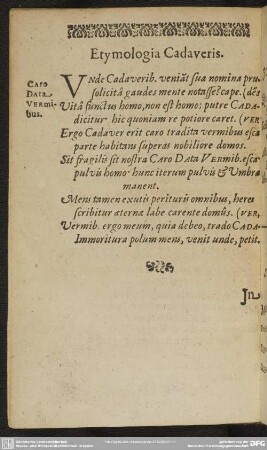 Etymologia Cadaveris.
Caro
Data
Vermi-
bus.
VNde Cadaverib. veniāt sua nomina pru-
solicitâ gaudes mente notasse? cape. (dēs
Vitâ functus homo, non est homo; putre CADA-
dicitur hic quoniam re potiore caret. (VER
Ergo Cadaver erit caro tradita vermibus esca
parte habitans superas nobiliore domos.
Sit fragilis sit nostra CARO DATA VERMIB. esca
pulvis homo hunc iterum pulvis & Umbra
manent.
Mens tamen exutis perituris omnibus, heres
scribitur æternæ labe carente domûs. (VER,
Vermib. ergo meum, quia debeo, trado CADA-
Immoritura polum mens, venit unde, petit.
Jn
DFG